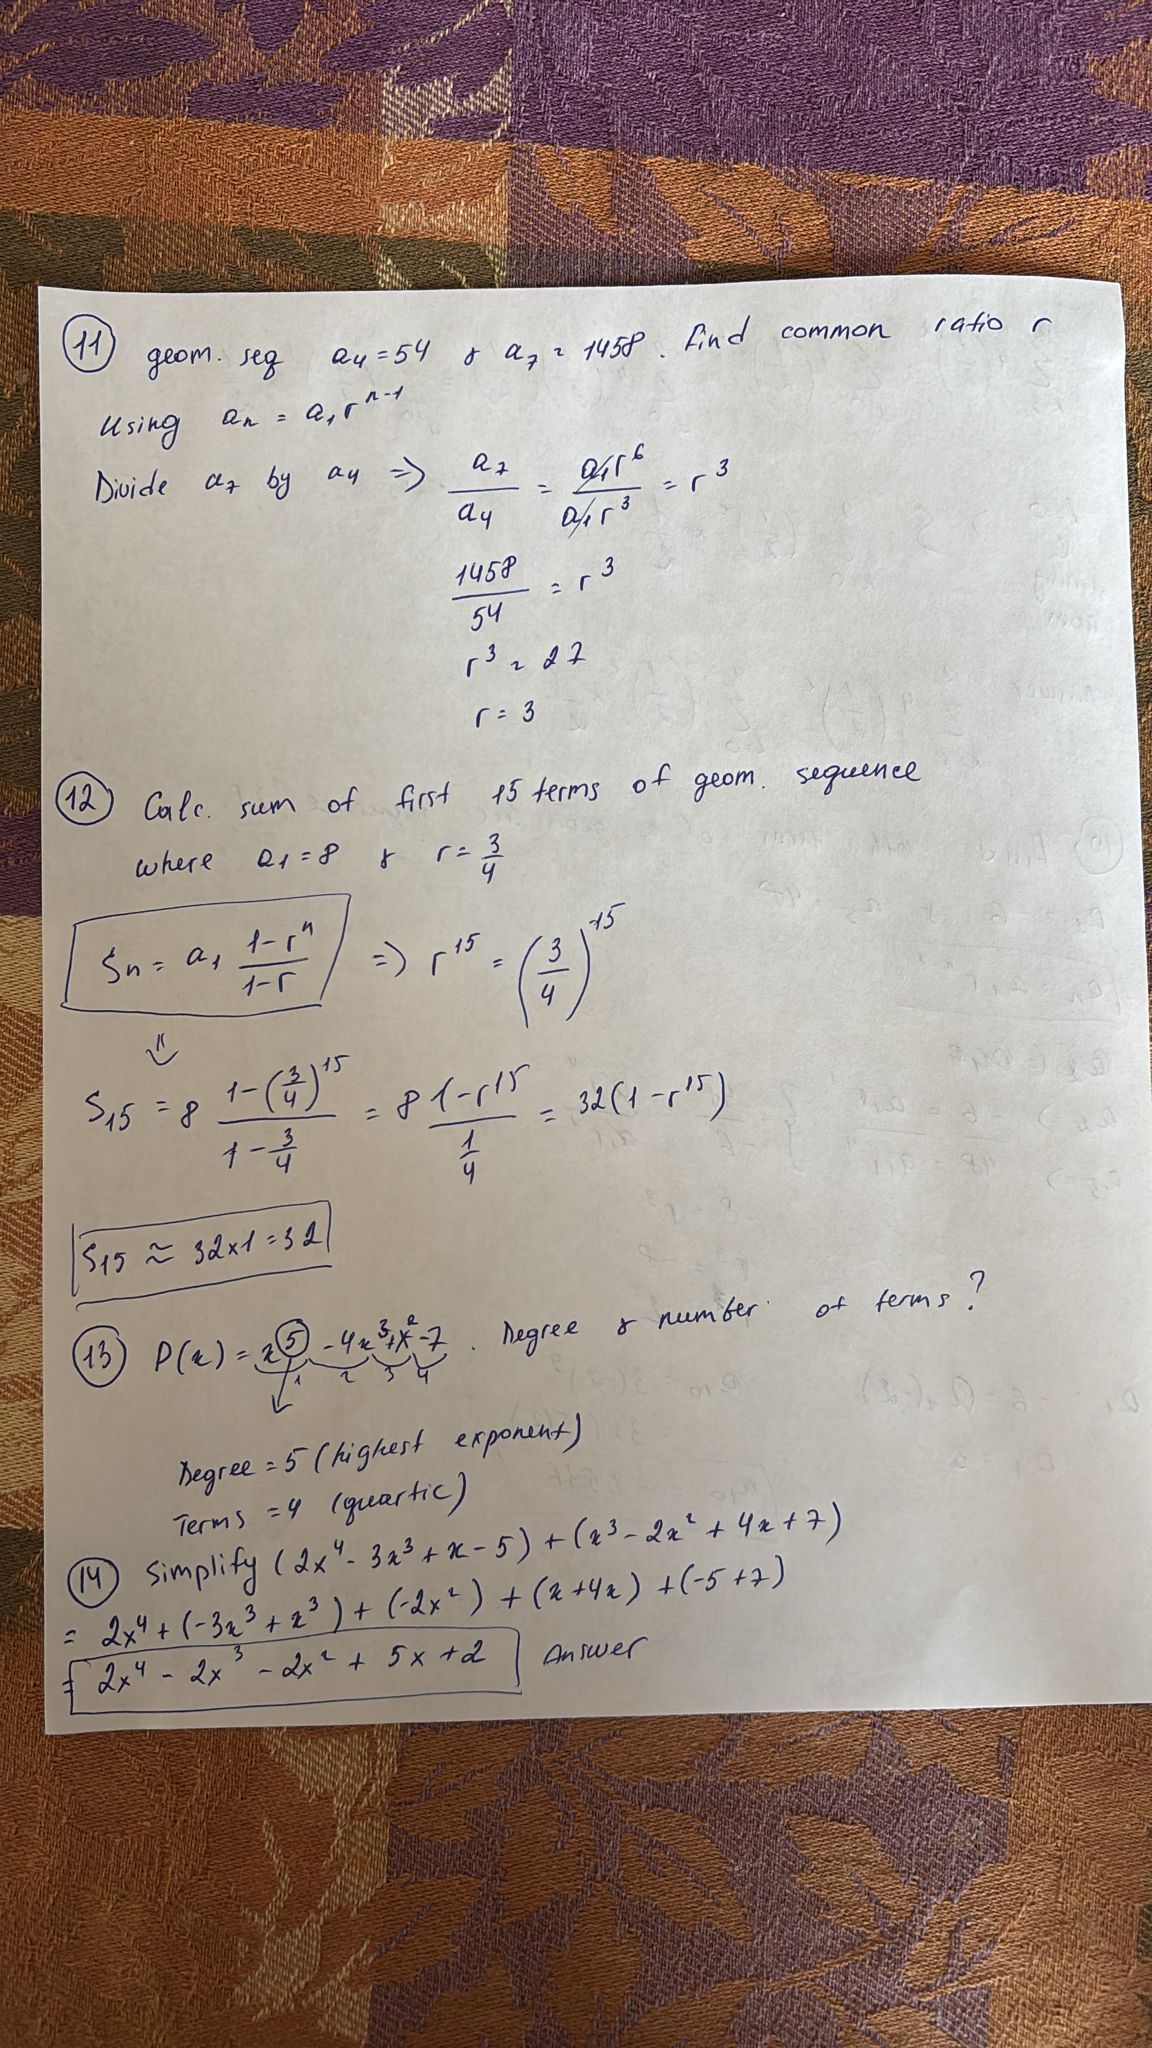 11 geom. seq a₄ = 54 & a₇ = 1458. Find common ratio r
Using aₙ = a₁rⁿ⁻¹
Divide a₇ by a₄ => a₇/a₄ = a₁r⁶/a₁r³ = r³
1458/54 = r³
r³ = 27
r = 3
12 Calc. sum of first 15 terms of geom. sequence
where a₁ = 8 & r = 3/4
Sₙ = a₁ (1-rⁿ)/(1-r) => r¹⁵ = (3/4)¹⁵
S₁₅ = 8 (1-(3/4)¹⁵)/(1-3/4) = 8 (1-r¹⁵)/(1/4) = 32(1-r¹⁵)
S₁₅ ≈ 32x1=32
13 P(x) = x⁵ - 4x³ + x² - 7. Degree & number of terms?
1 2 3 4
Degree = 5 (highest exponent)
Terms = 4 (quartic)
14 Simplify (2x⁴ - 3x³ + x - 5) + (x³ - 2x² + 4x + 7)
= 2x⁴ + (-3x³ + x³) + (-2x²) + (x+4x) + (-5+7)
= 2x⁴ - 2x³ - 2x² + 5x + 2 Answer